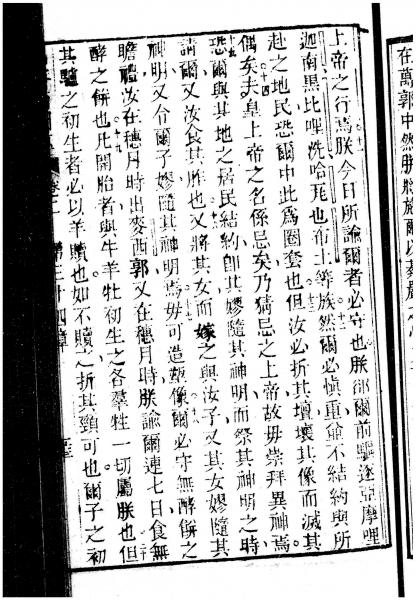 在萬郭中然朕將施爾以
上帝之行焉朕今日所諭爾者必守也朕卻爾前驅逐亞摩哩
迦南黑比哩洗哈也布士等族然爾必慎重不結約與所
赴之地民恐爾中此爲圈套也但汝必折其壇壞其像而滅其
偶矣夫皇上帝之名係忌矣乃猜忌之上帝故毋崇拜異神焉
恐爾與其地之居民結約卽其嫪隨其神明而祭其神明之時
請爾又汝食其胙也又將其女而嫁之與汝子又其女嫪隨其
神明又令爾子嫪隨其神明焉毋可造塑像爾必守無酵餅之
瞻禮汝在穗月時出麥西郭又在穗月時朕諭爾連七日食無
酵之餅也凡開胎者與牛羊牡初生之各羣牲一切屬朕也但
其驢之初生者必以羊贖也如不贖之折其頸可也爾子之初
第三十四章